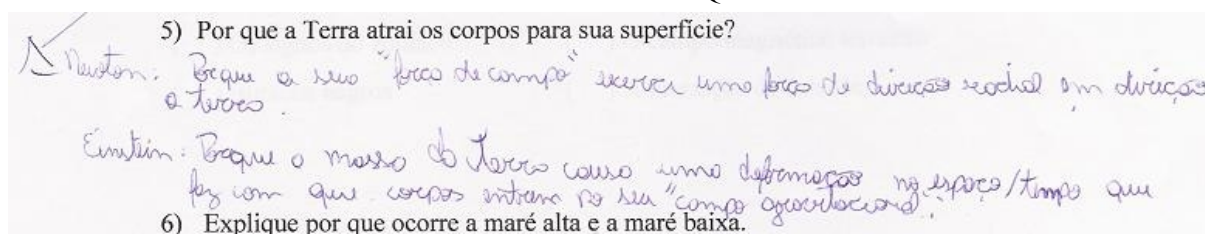 5) Por que a Terra atrai os corpos para sua superfície?
Newton: Porque a seu "força de campo" exerce uma força de direção radial em direção
a terra.
Einstein: Porque a massa da Terra causa uma deformação no espaço/tempo que
faz com que corpos entram no seu "campo gravitacional".
6) Explique por que ocorre a maré alta e a maré baixa.